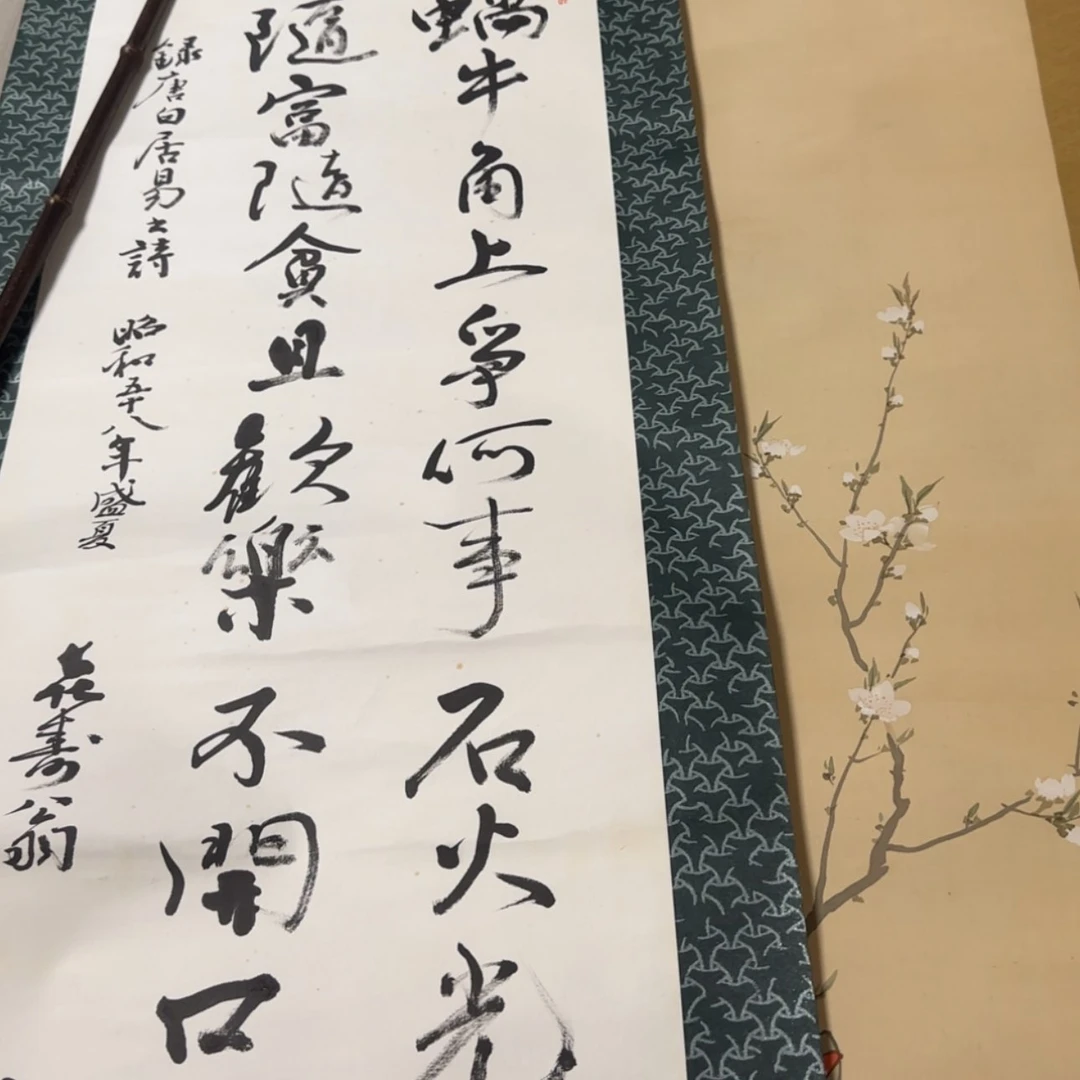 蝸牛角上爭何事石火光
隨富隨貧且歡樂不開口
錄唐白居易之詩 昭和五十八年盛夏
喜壽翁